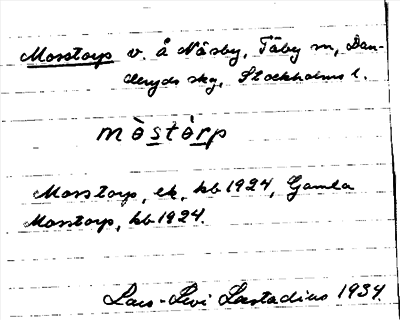 Mosstorp v. å Näsby, Täby sn, Dan-
deryds skg, Stockholms l.
mòstòrp
Mosstorp, ek, kb 1924, Gamla
Mosstorp, kb 1924.
Lars-Levi Læstadius 1934.